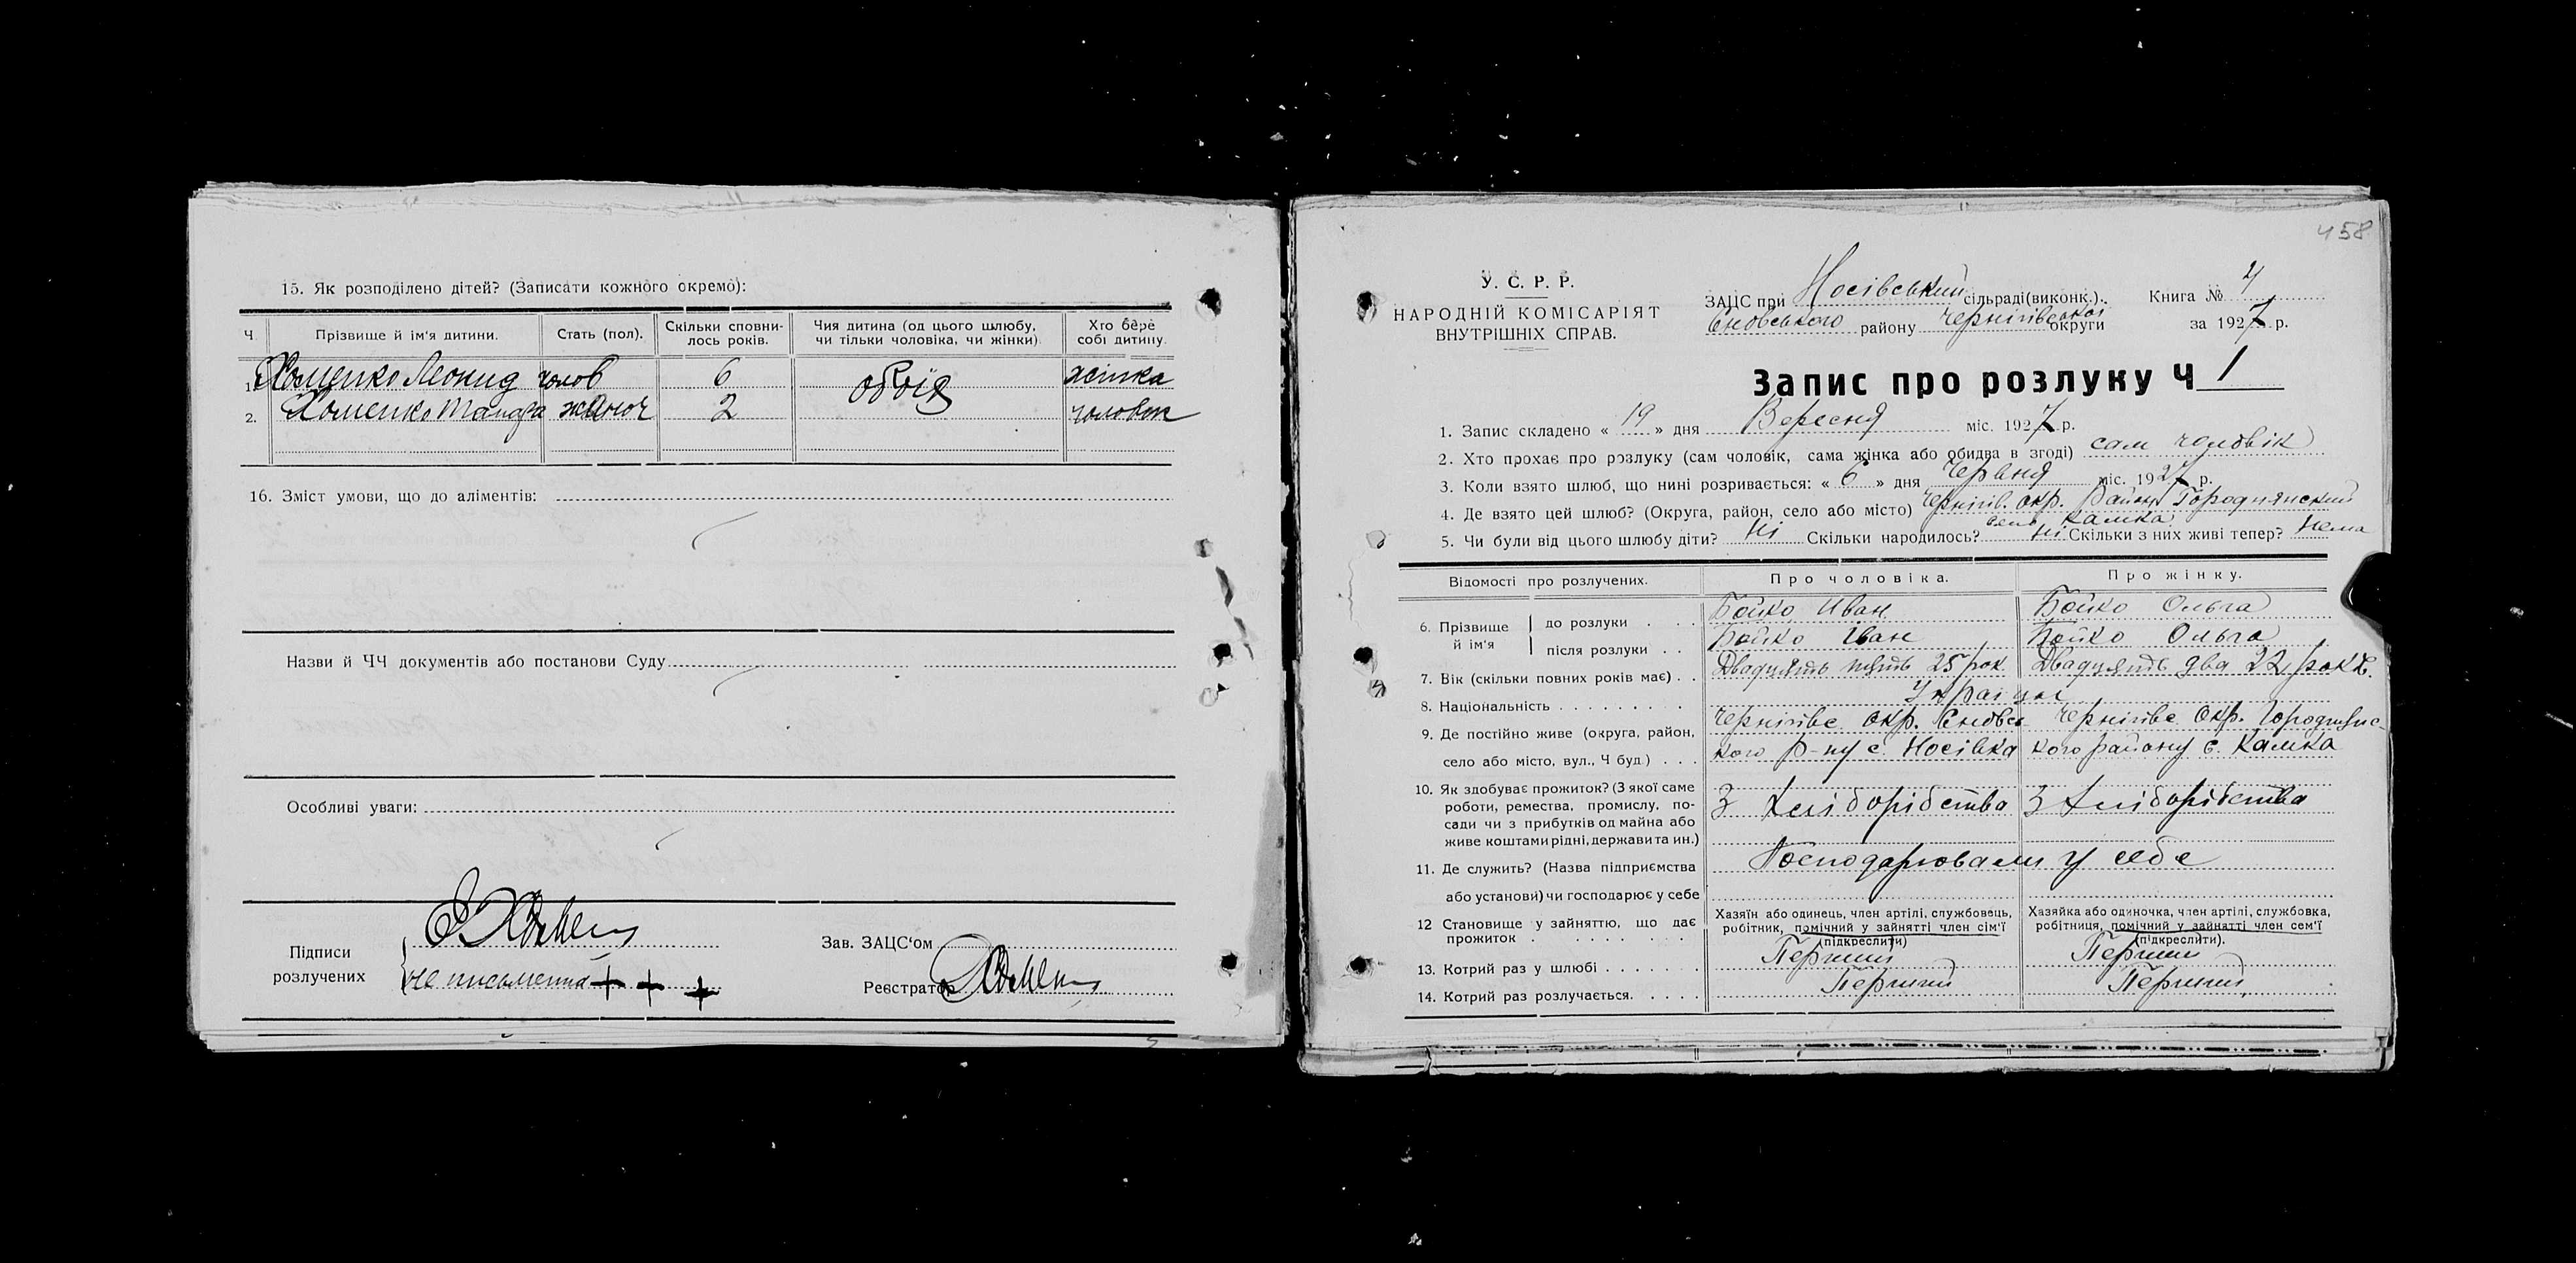 15. Як розподілено дітей? (Записати кожного окремо):
Ч. Прізвище й ім'я дитини. Стать (пол). Скільки сповни-лось років. Чия дитина (од цього шлюбу, чи тільки чоловіка, чи жінки). Хто бере собі дитину.
1. Хоменко Леонид чолов 6 обоїх жінка
2. Хоменко жіноч 2 чоловік
16. Зміст умови, що до аліментів:
Назви й ЧЧ документів або постанови Суду
Особливі уваги:
Підписи розлучених
не письменна + + +
Зав. ЗАЦС'ом
Реєстратор
458
У. С. Р. Р.
НАРОДНІЙ КОМІСАРІЯТ
ВНУТРІШНІХ СПРАВ.
ЗАЦС при Носівський сільраді (виконк.).
Сновського району Чернігівської округи
Книга № 4
за 1927 р.
Запис про розлуку Ч 1
1. Запис складено « 19 » дня Вересня міс. 1927 р.
2. Хто прохає про розлуку (сам чоловік, сама жінка або обидва в згоді) сам чоловік
3. Коли взято шлюб, що нині розривається: « 6 » дня Червня міс. 1927 р.
4. Де взято цей шлюб? (Округа, район, село або місто) Чернігів. окр. район Городнянский
село Камка
5. Чи були від цього шлюбу діти? Ні Скільки народилось? Ні Скільки з них живі тепер? Нема
Відомості про розлучених. Про чоловіка. Про жінку.
6. Прізвище й ім'я до розлуки . . . Бойко Иван Бойко Ольга
після розлуки . . Бойко Іван Бойко Ольга
7. Вік (скільки повних років має) . . Двадцять пять 25 рок. Двадцять два 22 рокі.
8. Національність . . . . . . . . . Українці
9. Де постійно живе (округа, район, Чернігівс. окр. Сновсь- Чернігівс. Окр. Городнянс-
село або місто, вул., Ч буд.) . . . кого р-ну с. Носівка кого району с. Камка
10. Як здобуває прожиток? (З якої саме
роботи, ремества, промислу, по- З хліборобства З хліборобства
сади чи з прибутків од майна або
живе коштами рідні, держави та ин.)
11. Де служить? (Назва підприємства Господарювали у себе
або установи) чи господарює у себе
12 Становище у зайняттю, що дає прожиток . . . . . . . Хазяїн або одинець, член артілі, службовець, робітник, помічний у зайнятті член сім'ї (підкреслити) Хазяйка або одиночка, член артілі, службовка, робітниця, помічний у зайнятті член сем'ї (підкреслити).
13. Котрий раз у шлюбі . . . . . . . Перший Перший
14. Котрий раз розлучається. . . . . Перший Перший